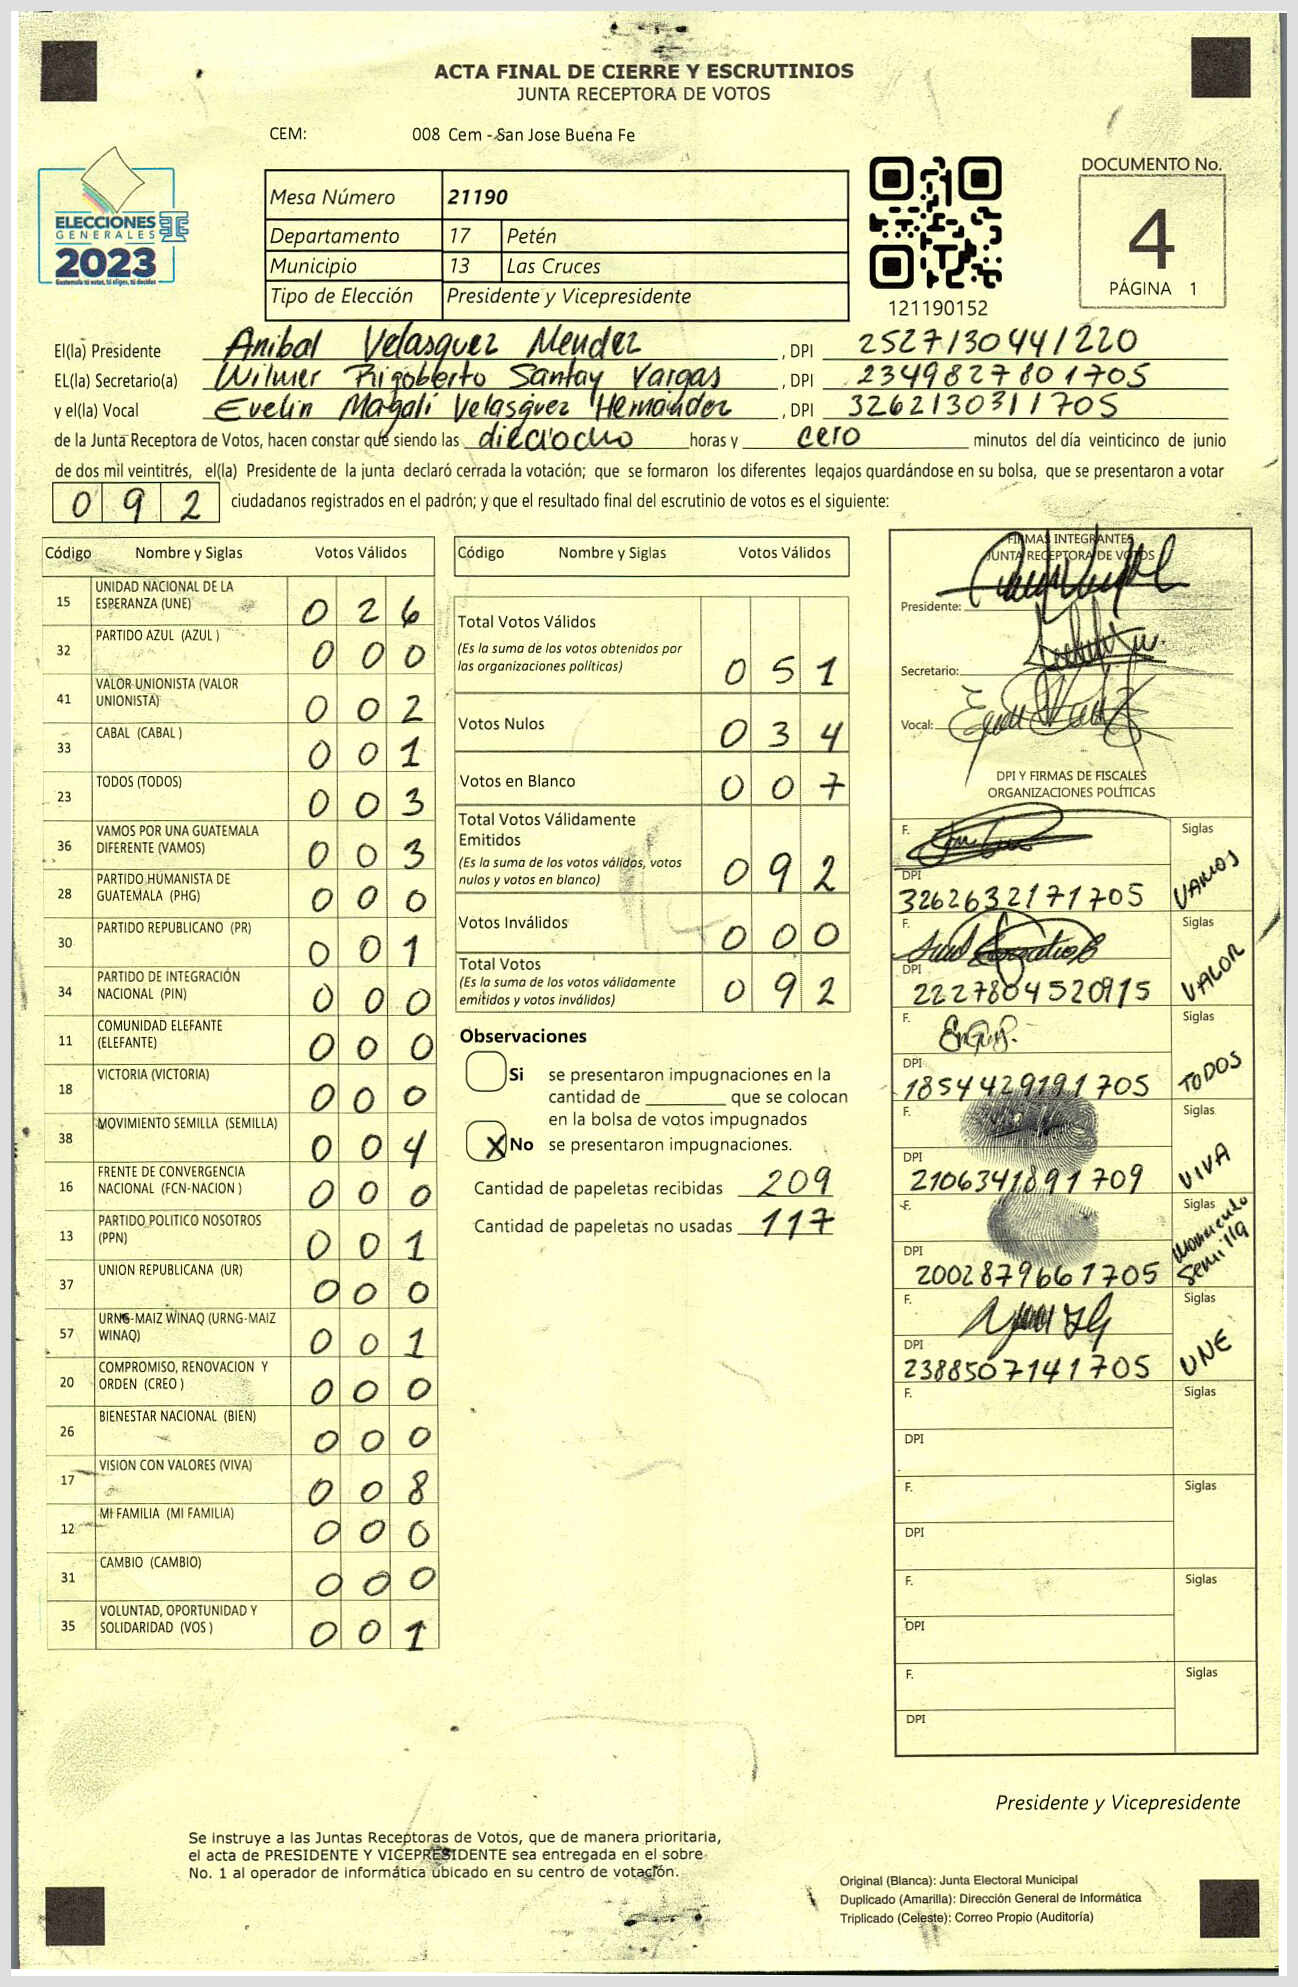 ACTA FINAL DE CIERRE Y ESCRUTINIOS
JUNTA RECEPTORA DE VOTOS
CEM: 008 Cem - San Jose Buena Fe
ELECCIONES
GENERALES
2023
Guatemala tú votas, tú eliges, tú decides
Mesa Número 21190
Departamento 17 Petén
Municipio 13 Las Cruces
Tipo de Elección Presidente y Vicepresidente
121190152
DOCUMENTO No.
4
PÁGINA 1
El(la) Presidente Anibal Velasquez Mendez , DPI 2527130441220
EL(la) Secretario(a) Wilmer Rigoberto Santay Vargas , DPI 2349827801705
y el(la) Vocal Evelin Magalí Velasquez Hernández , DPI 3262130311705
de la Junta Receptora de Votos, hacen constar que siendo las dieciocho horas y cero minutos del día veinticinco de junio
de dos mil veintitrés, el(la) Presidente de la junta declaró cerrada la votación; que se formaron los diferentes legajos guardándose en su bolsa, que se presentaron a votar
092 ciudadanos registrados en el padrón; y que el resultado final del escrutinio de votos es el siguiente:
Código Nombre y Siglas Votos Válidos
15 UNIDAD NACIONAL DE LA ESPERANZA (UNE) 0 2 6
32 PARTIDO AZUL (AZUL ) 0 0 0
41 VALOR UNIONISTA (VALOR UNIONISTA) 0 0 2
33 CABAL (CABAL ) 0 0 1
23 TODOS (TODOS) 0 0 3
36 VAMOS POR UNA GUATEMALA DIFERENTE (VAMOS) 0 0 3
28 PARTIDO HUMANISTA DE GUATEMALA (PHG) 0 0 0
30 PARTIDO REPUBLICANO (PR) 0 0 1
34 PARTIDO DE INTEGRACIÓN NACIONAL (PIN) 0 0 0
11 COMUNIDAD ELEFANTE (ELEFANTE) 0 0 0
18 VICTORIA (VICTORIA) 0 0 0
38 MOVIMIENTO SEMILLA (SEMILLA) 0 0 4
16 FRENTE DE CONVERGENCIA NACIONAL (FCN-NACION ) 0 0 0
13 PARTIDO POLITICO NOSOTROS (PPN) 0 0 1
37 UNION REPUBLICANA (UR) 0 0 0
57 URNG-MAIZ WINAQ (URNG-MAIZ WINAQ) 0 0 1
20 COMPROMISO, RENOVACION Y ORDEN (CREO ) 0 0 0
26 BIENESTAR NACIONAL (BIEN) 0 0 0
17 VISION CON VALORES (VIVA) 0 0 8
12 MI FAMILIA (MI FAMILIA) 0 0 0
31 CAMBIO (CAMBIO) 0 0 0
35 VOLUNTAD, OPORTUNIDAD Y SOLIDARIDAD (VOS ) 0 0 1
Código Nombre y Siglas Votos Válidos
Total Votos Válidos
(Es la suma de los votos obtenidos por
las organizaciones políticas) 0 5 1
Votos Nulos 0 3 4
Votos en Blanco 0 0 7
Total Votos Válidamente
Emitidos
(Es la suma de los votos válidos, votos
nulos y votos en blanco) 0 9 2
Votos Inválidos 0 0 0
Total Votos
(Es la suma de los votos válidamente
emitidos y votos inválidos) 0 9 2
Observaciones
Si se presentaron impugnaciones en la
cantidad de ________ que se colocan
en la bolsa de votos impugnados
X No se presentaron impugnaciones.
Cantidad de papeletas recibidas 209
Cantidad de papeletas no usadas 117
FIRMAS INTEGRANTES
JUNTA RECEPTORA DE VOTOS
Presidente:
Secretario:
Vocal:
DPI Y FIRMAS DE FISCALES
ORGANIZACIONES POLÍTICAS
F. Siglas
DPI 3262632171705 VAMOS
F. Siglas
DPI 2227804520915 VALOR
F. Siglas
DPI 1854429191705 TODOS
F. Siglas
DPI 2106341891709 VIVA
F. Siglas
DPI 2002879661705 Semilla
F. Siglas
DPI 2388507141705 UNE
F. Siglas
DPI
F. Siglas
DPI
F. Siglas
DPI
F. Siglas
DPI
Presidente y Vicepresidente
Se instruye a las Juntas Receptoras de Votos, que de manera prioritaria,
el acta de PRESIDENTE Y VICEPRESIDENTE sea entregada en el sobre
No. 1 al operador de informática ubicado en su centro de votación.
Original (Blanca): Junta Electoral Municipal
Duplicado (Amarilla): Dirección General de Informática
Triplicado (Celeste): Correo Propio (Auditoría)